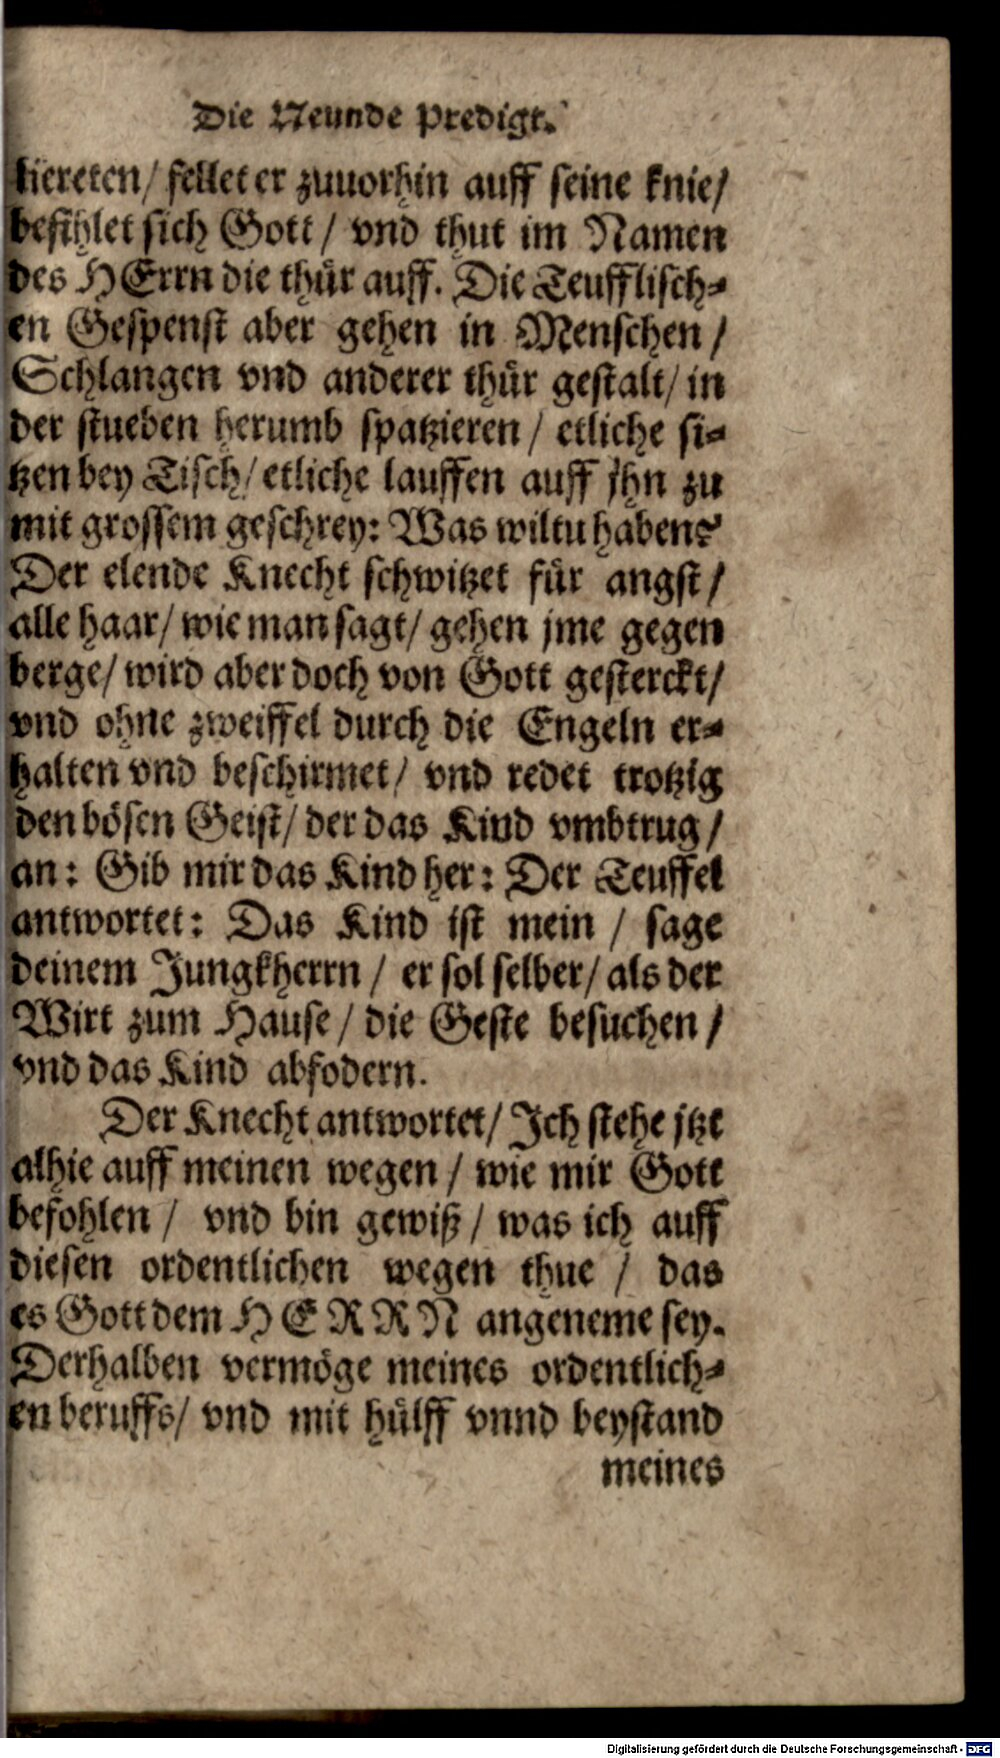 Die Neunde Predigt.
tiereten/ fellet er zuuorhin auff seine knie/
befihlet sich Gott / vnd thut im Namen
des HErrn die thür auff. Die Teufflisch-
en Gespenst aber gehen in Menschen /
Schlangen vnd anderer thür gestalt/ in
der stueben herumb spatzieren / etliche si-
tzen bey Tisch/ etliche lauffen auff jhn zu
mit grossem geschrey: Was wiltu haben?
Der elende Knecht schwitzet für angst /
alle haar/ wie man sagt/ gehen jme gegen
berge/ wird aber doch von Gott gesterckt/
vnd ohne zweiffel durch die Engeln er-
halten vnd beschirmet/ vnd redet trotzig
den bösen Geist/ der das Kind vmbtrug /
an: Gib mir das Kind her: Der Teuffel
antwortet: Das Kind ist mein / sage
deinem Jungkherrn / er sol selber/ als der
Wirt zum Hause / die Geste besuchen /
vnd das Kind abfodern.
Der Knecht antwortet/ Ich stehe jtzt
alhie auff meinen wegen / wie mir Gott
befohlen / vnd bin gewiß / was ich auff
diesen ordentlichen wegen thue / das
es Gott dem HERRN angeneme sey.
Derhalben vermöge meines ordentlich-
en beruffs/ vnd mit hülff vnnd beystand
meines
Digitalisierung gefördert durch die Deutsche Forschungsgemeinschaft - DFG